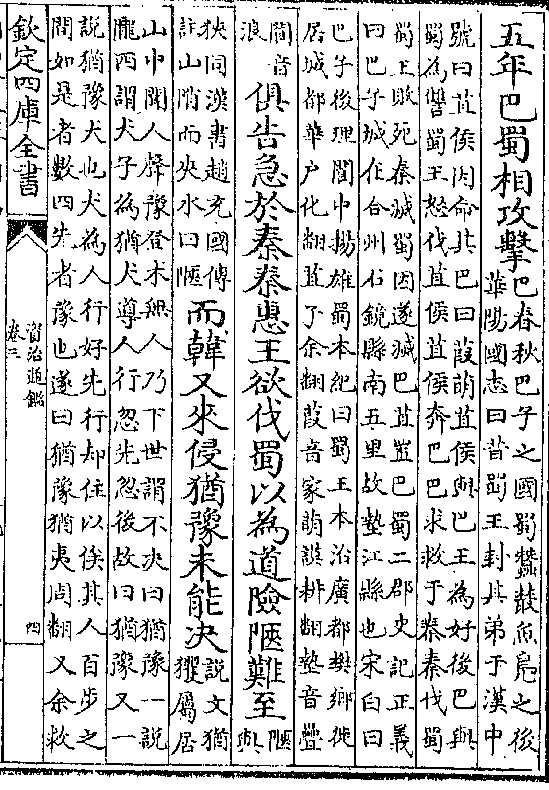 五年巴蜀相攻擊
巴春秋巴子之國蜀蠶叢魚鳧之後
華陽國志曰昔蜀王封其弟于漢中
號曰苴侯因命其巴曰葭萌苴侯與巴王為好後巴與
蜀為讐蜀王怒伐苴侯苴侯奔巴巴求救于秦秦伐蜀
蜀王敗死秦滅蜀因遂滅巴苴置巴蜀二郡史記正義
曰巴子城在合州石鏡縣南五里故墊江縣也宋白曰
巴子後理閬中揚雄蜀本紀曰蜀王本治廣都樊鄉徙
居城都華戶化翻苴子余翻葭音家萌謨耕翻墊音疊
閬音
浪
俱告急於秦秦惠王欲伐蜀以為道險陿難至
陿
與
狹同漢書趙充國傳
註山陗而夾水曰陿
而韓又來侵猶豫未能決
說文猶
玃屬居
山中聞人聲豫登木無人乃下世謂不决曰猶豫一說
隴西謂犬子為猶犬導人行忽先忽後故曰猶豫又一
說猶豫犬也犬為人行好先行却住以俟其人百步之
間如是者數四先者豫也遂曰猶豫猶夷周翻又余救
欽定四庫全書
資治通鑑
卷三
四